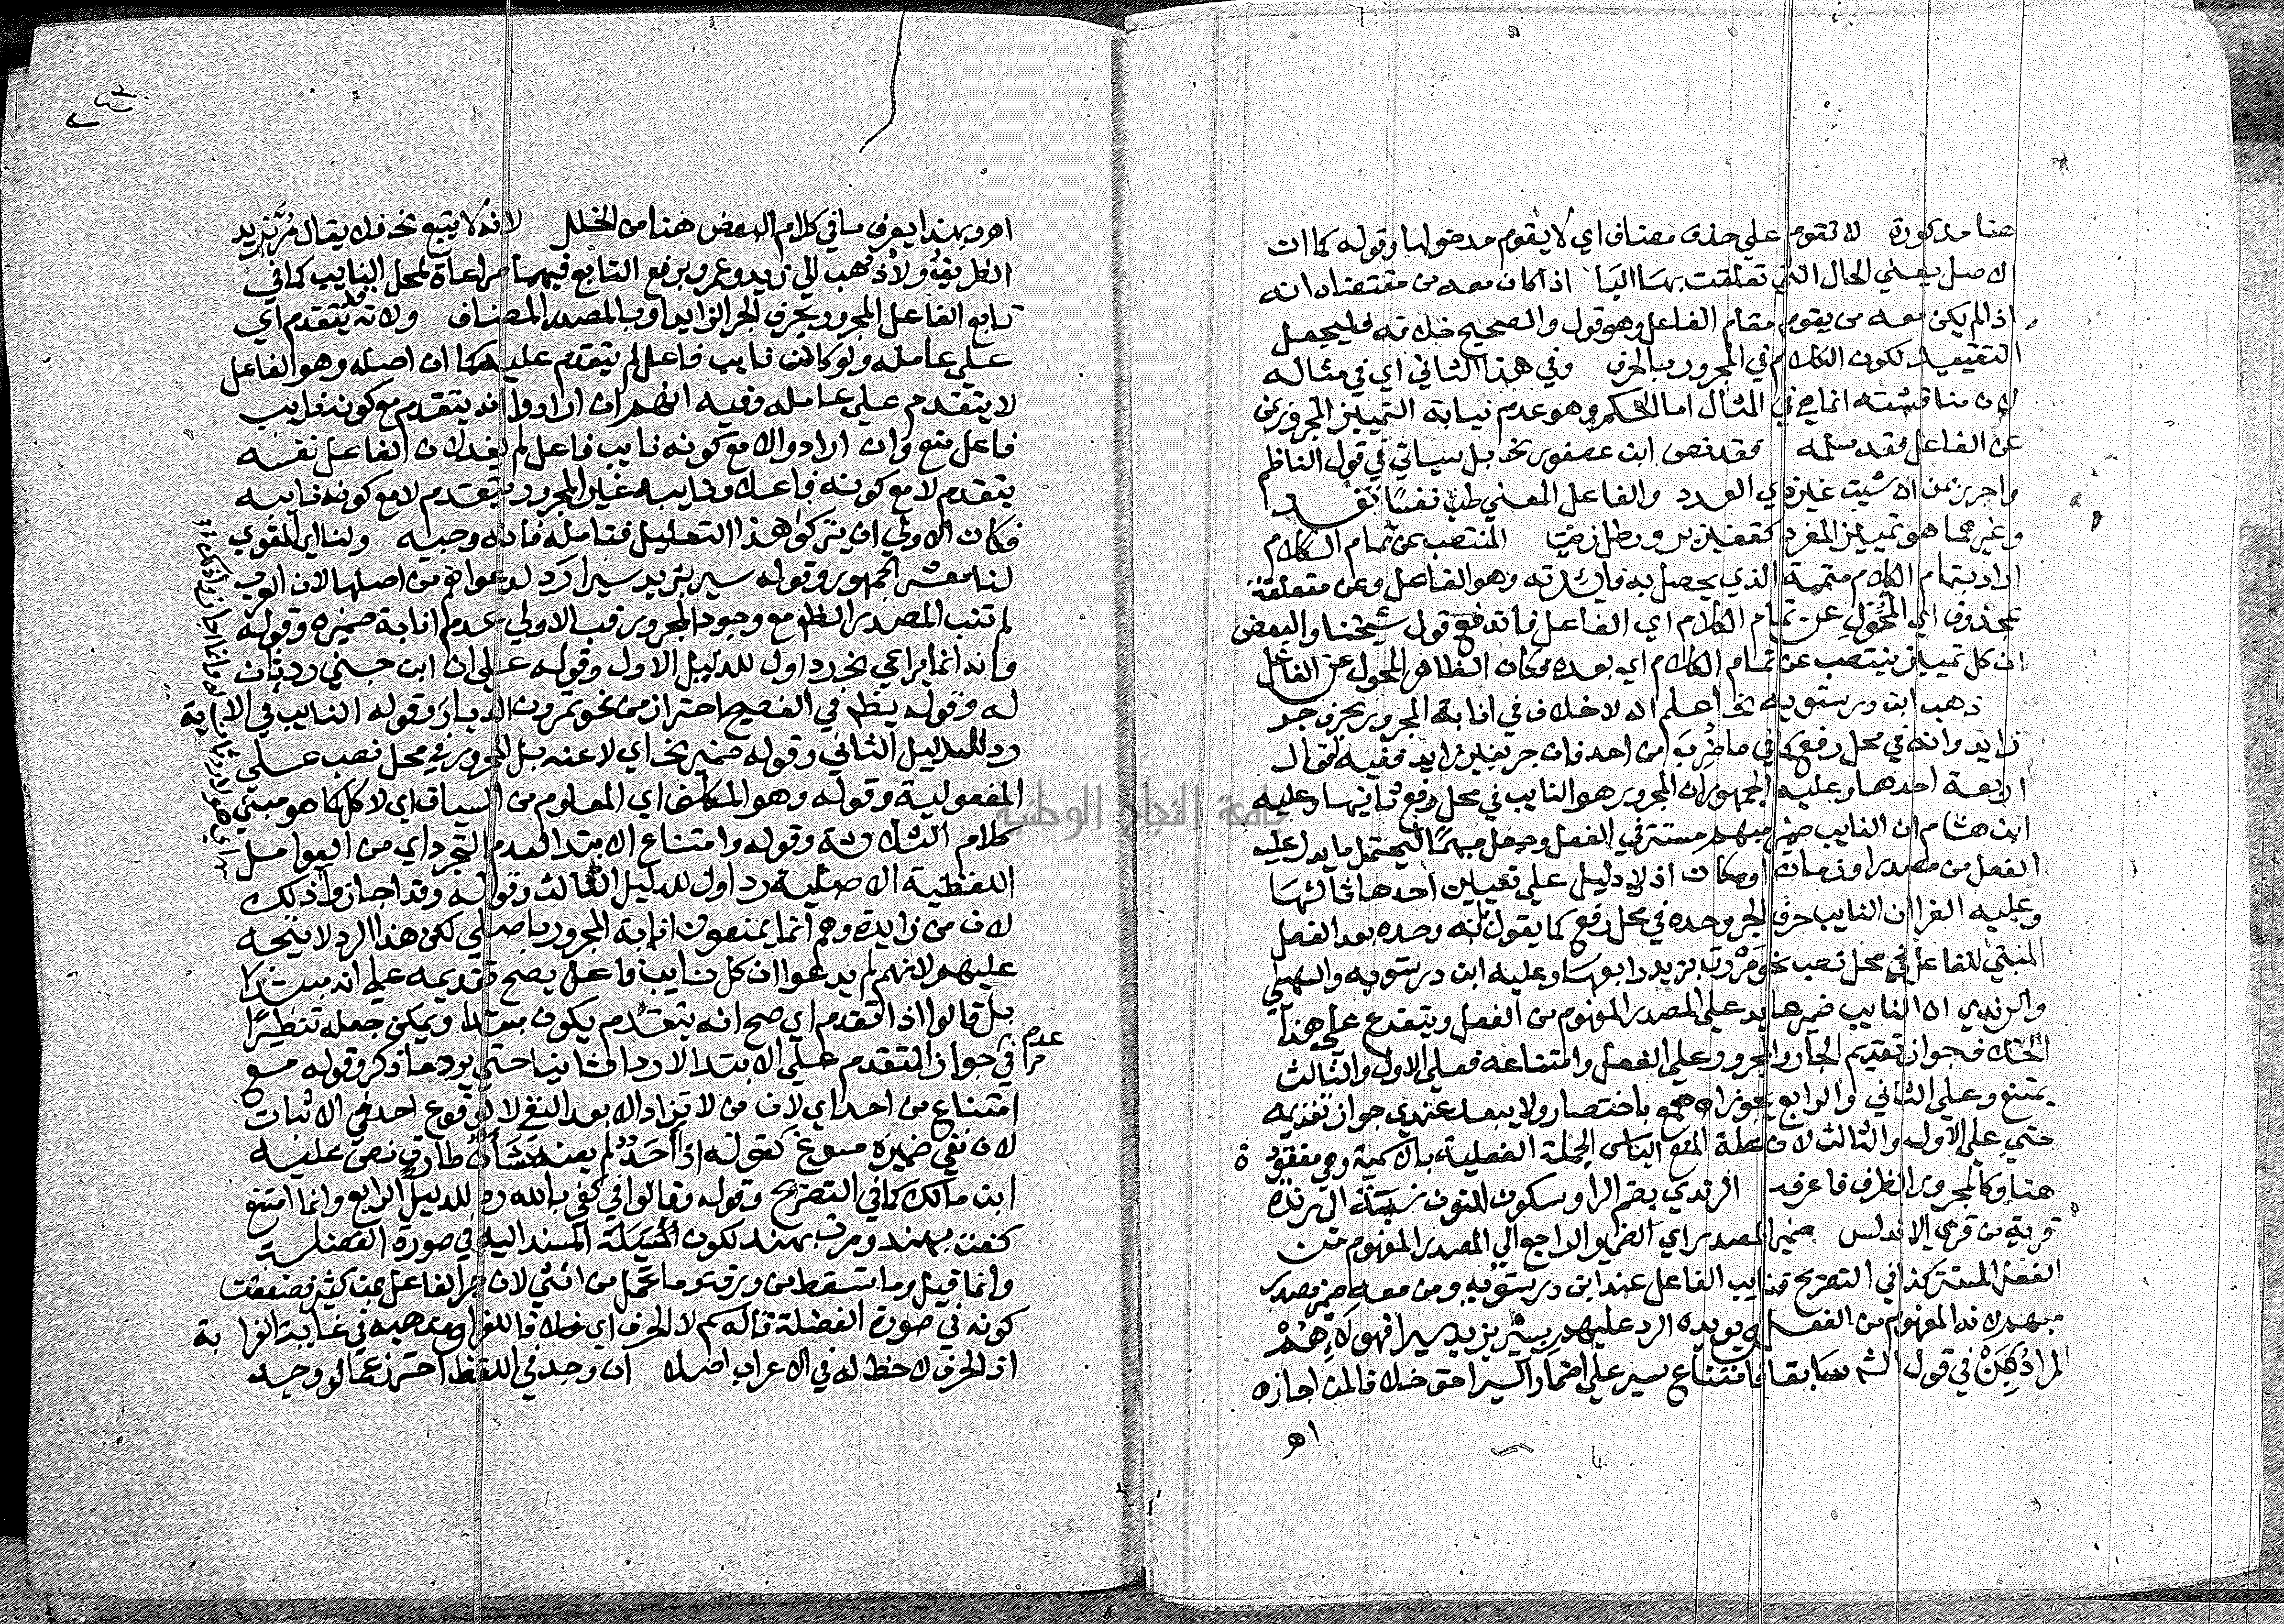 هنا مذكورة لا تقوم على حذف مضاف اي لا يقوم مدخولها وقوله كما ان
الاصل يعني الحال التي تعلقت بها اليا اذا كان معه من مقتضاه انه
اذا لم يكن معه من يقوم مقام الفاعل وهو قول والصحيح خلافه فليجعل
التقييد لكون الكلام في المجرور بالحرف وفي هذا الثاني اي في مثاله
لان مناقشته انما هي في المثال اما الحكم وهو عدم نيابة التمييز المجرور بمن
عن الفاعل فقد سلمه فقد نص ابن عصفور الخ بل سياتي في قول الناظم
واجرر بمن ان شيت غير ذي العدد والفاعل المعني طب نفسا تفد
وغيرهما هو تمييز المفرد كقفيز بر ورطل زيتا المنتصب عن تمام الكلام
اراد بتمام الكلام متممه الذي يحصل به فايدته وهو الفاعل وعن متعلقة
بمحذوف اي المحول عن تمام الكلام اي الفاعل فاندفع قول شيخنا والبعض
ان كل تمييز ينتصب عن تمام الكلام اي بعده فكان الظاهر المحول عن الفاعل
ذهب ابن درستويه الخ اعلم انه لا خلاف في انابة المجرور بحرف جر
زايد وانه في محل رفع كما في ما ضُرِبَ من احد فان جر بغير زايد ففيه اقوال
اربعة احدها وعليه الجمهور ان المجرور هو النايب في محل رفع ثانيها وعليه
ابن هشام ان النايب ضمير مبهم مستتر في الفعل وجعل مبهما ليحتمل ما يدل عليه
الفعل من مصدر او زمان او مكان اذ لا دليل على تعيين احدها ثالثها
وعليه الفرا ان النايب حرف الجر وحده في محل رفع كما يقول انه وحده بعد الفعل
المبني للفاعل في محل نصب نحو مررت بزيد رابعها وعليه ابن درستويه والسهيلي
والرندي ان النايب ضمير عايد على المصدر المفهوم من الفعل ويتفرع على هذا
الخلاف جواز تقديم الجار والمجرور على الفعل وامتناعه فعلى الاول والثالث
يمتنع وعلى الثاني والرابع يجوز اه همع باختصار ولا يبعد عندي جواز تقديمه
حتى على الاول والثالث لان علة المنع التباس الجملة الفعلية بالاسمية وهي مفقودة
هنا وكالمجرور الظرف فاعرف الرندي بضم الرا وسكون النون نسبة الى رندة
قرية من قرى الاندلس ضمير المصدر اي الضمير الراجع الى المصدر المفهوم من
الفعل المستتر كذا في التصريح فنايب الفاعل عند ابن درستويه ومن معه ضمير مصدر
مبهم لانه المفهوم من الفعل يويده الرد عليهم بسير بزيد سيرا فهو
المراد في قول الش سابقا فامتناع سير على اضمار السير احق خلافا لمن اجازه
اه
اهـ وبهذا يعرف ما في كلام البعض هنا من الخلل لانه لا يتبع الخ فلا يقال مُرَّ بزيد
الظريفُ ولا ذهب الى زيد وعمرو برفع التابع فيهما مراعاة لمحل النايب كما في
تابع الفاعل المجرور بحرف الجر الزايد او بالمصدر المضاف ولانه يتقدم اي
على عامله ولو كان نايب فاعل لم يتقدم عليه كما ان اصله وهو الفاعل
لا يتقدم على عامله وفيه انهم ان ارادوا انه يتقدم مع كونه نايب
فاعل منع وان ارادوا لا مع كونه نايب فاعل لم يفد لان الفاعل نفسه
يتقدم لا مع كونه فاعلا ونايبه غير المجرور يتقدم لا مع كونه نايبه
فكان الاولى ان يتركوا هذا التعليل فتامله فانه وجيه ولنا اي القوي
لنا معشر الجمهور وقوله سير بزيد سيرا رد لدعواهم من اصلها لان العرب
لم تنب المصدر الظاهر مع وجود المجرور فبالاولى عدم انابة ضميره وقوله
وانه انما يراعي الخ رد اول للدليل الاول وقوله على ان ابن جني رد ثان
له وقوله يظهر في الفصيح احتراز من نحو تمرون الديار وقوله النايب في الاية
رد للدليل الثاني وقوله ضمير الخ اي لا عنه بل المجرور في محل نصب على
المفعولية وقوله وهو المكلف اي المعلوم من السياق اي لا كل كما هو مبني
كلام الثلاثة وقوله وامتناع الابتدا لعدم التجرد اي من العوامل
اللفظية الاصلية رد اول للدليل الثالث وقوله وقد اجازوا ذلك
لان من زايدة وهم انما يمنعون انابة المجرور باصلي لكن هذا الرد لا يتجه
عليهم لانهم لم يدعوا ان كل نايب فاعل يصح تقديمه على انه مبتدا
بل قالوا اذا تقدم اي صح انه يتقدم يكون مبتدا ويمكن جعله تنظيرا
في عدم جواز المتقدم على الابتدا لا ردا ثانيا حتى يرد ما ذكر وقوله مع
امتناع من احد اي لان من لا تزاد الا بعد النفي لا لوقوع احد في الاثبات
لان نفي ضميره مسوغ كقوله اذا احدٌ لم يعنه شأن طارق نص عليه
ابن مالك كما في التصريح وقوله وقالوا في كفى بالله رد للدليل الرابع وانما امتنع
كفت بهند ومرت بهند لكون المسند اليه في صورة الفضلة
وانما قيل وما تسقط من ورقة وما تحمل من انثى لان جر الفاعل بمن كثير فضعفت
كونه في صورة الفضلة قاله سم لا الحرف اي خلافا للفرا ومذهبه في غاية الغرابة
اذ الحرف لا حظ له في الاعراب اصلا ان وجد في اللفظ احترز عما لو وجد